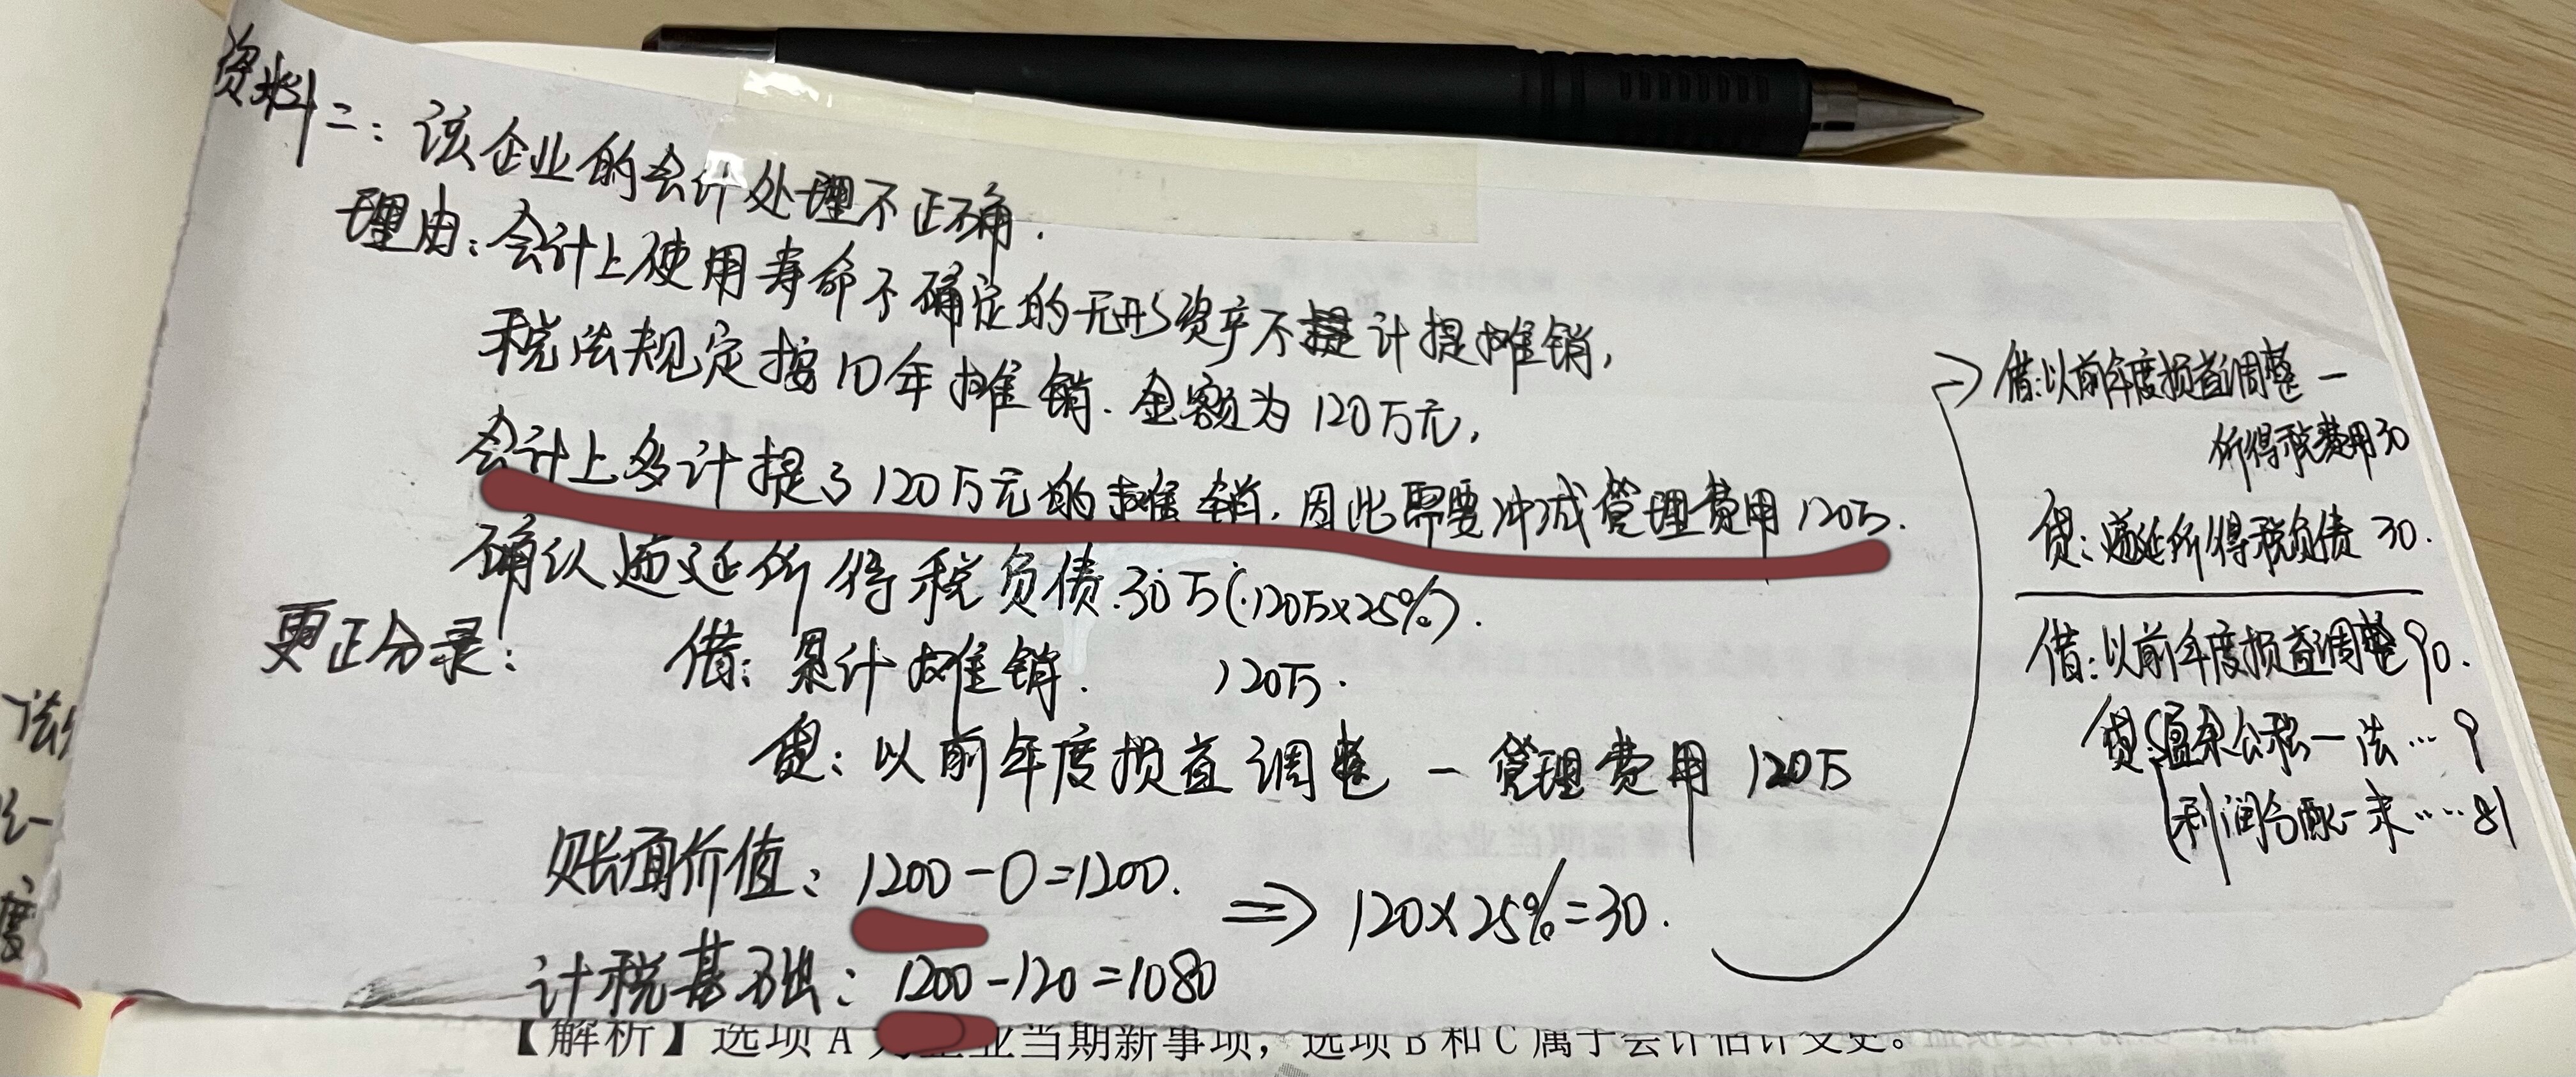 资料二：该企业的会计处理不正确.
理由：会计上使用寿命不确定的无形资产不计提摊销，
税法规定按10年摊销.金额为120万元，
会计上多计提了120万元的摊销，因此需要冲减管理费用120万.
确认递延所得税负债.30万(120万×25%).
更正分录：借：累计摊销. 120万.
贷：以前年度损益调整 — 管理费用 120万
账面价值：1200-0=1200.
⇒ 120×25%=30.
计税基础：1200-120=1080
借：以前年度损益调整 —
所得税费用30
贷：递延所得税负债 30.
借：以前年度损益调整 90.
贷：盈余公积—法…9
利润分配—未……81
法
度
【解析】选项A为企业当期新事项，选项B和C属于会计估计变更。